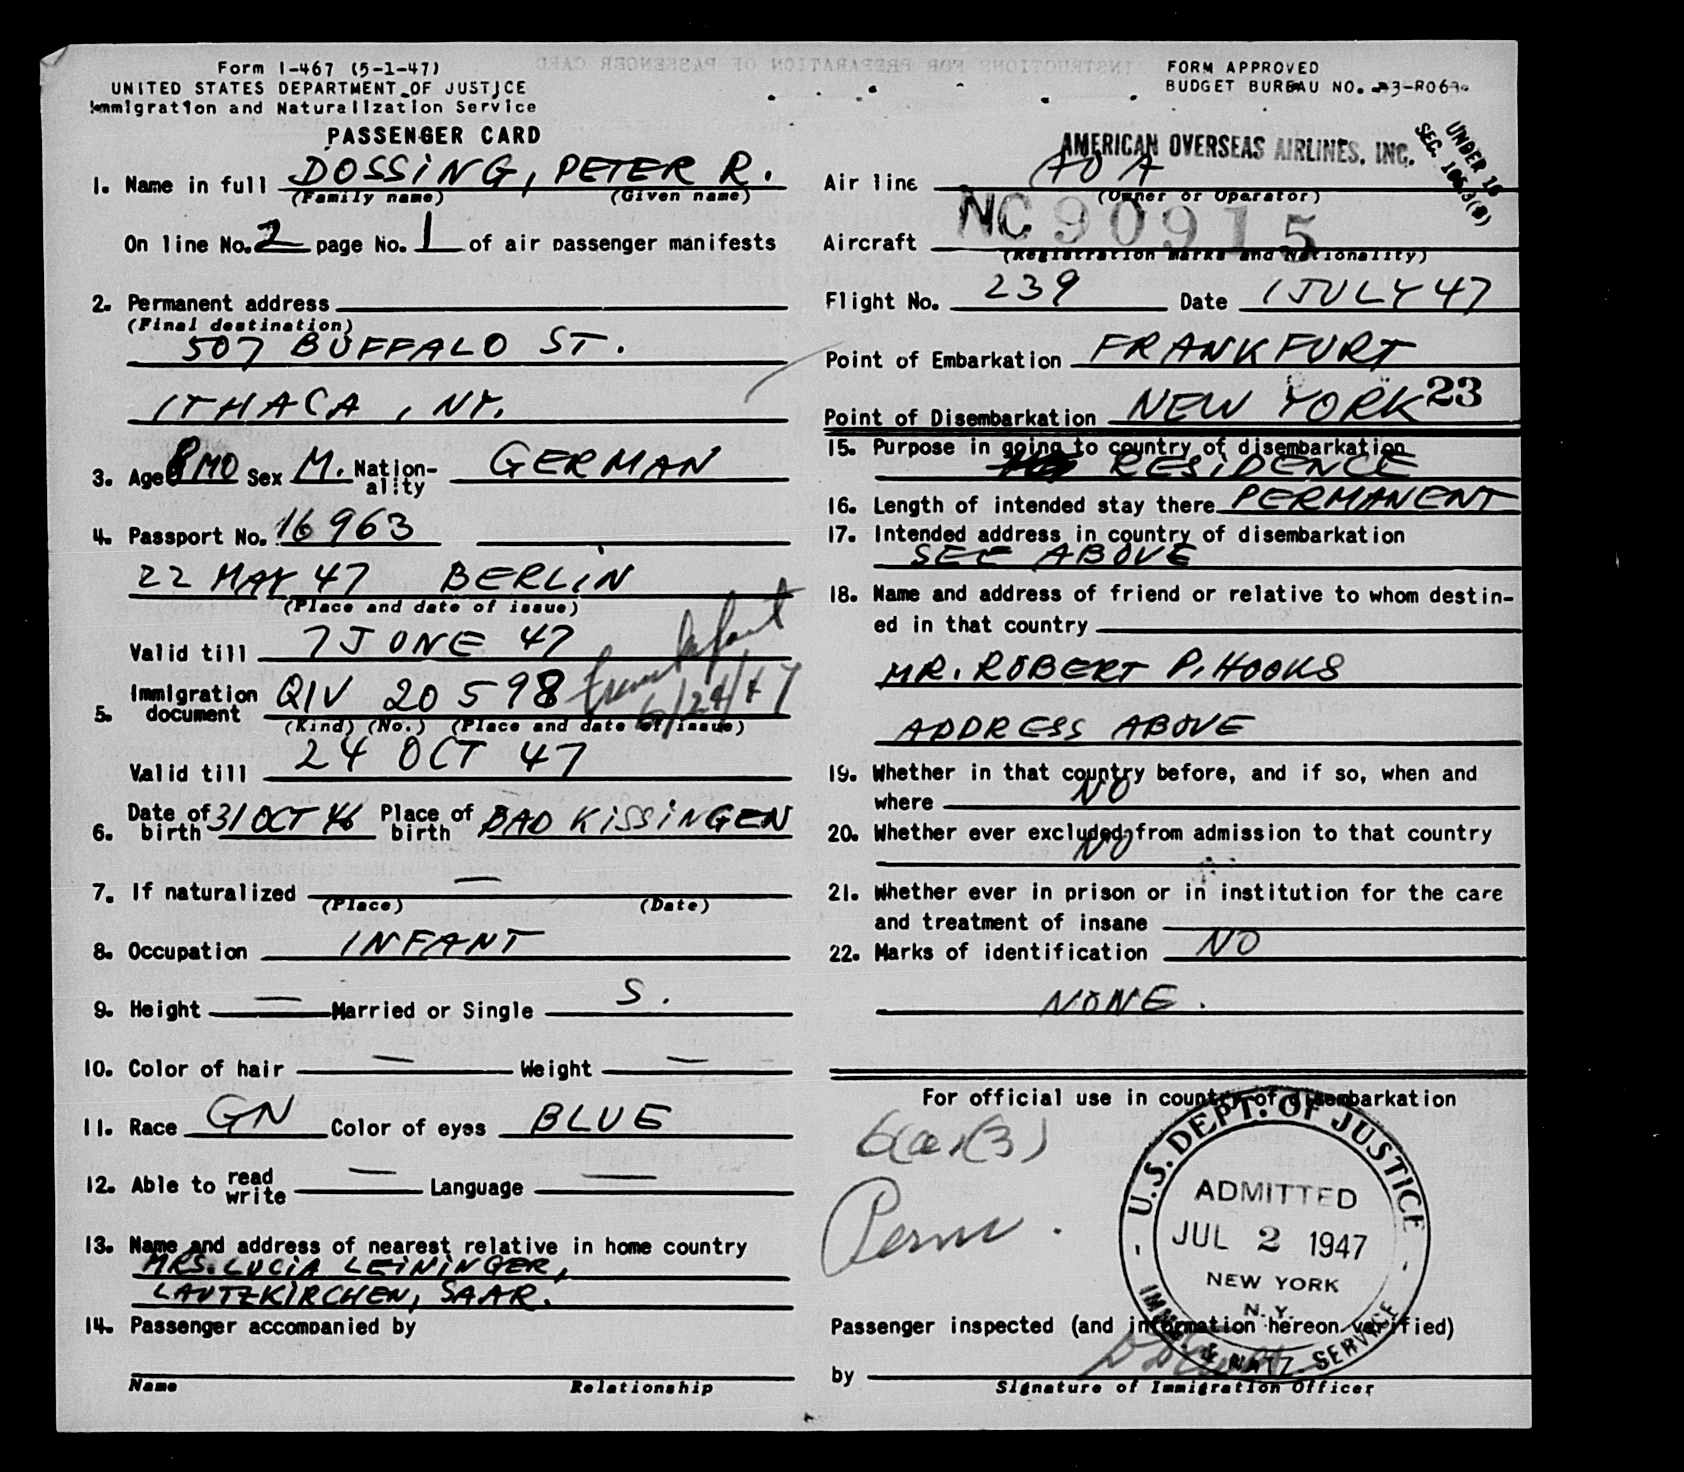 Form I-467 (5-1-47)
UNITED STATES DEPARTMENT OF JUSTICE
Immigration and Naturalization Service
PASSENGER CARD
1. Name in full DOSSING, PETER R.
(Family name) (Given name)
On line No. 2 page No. 1 of air passenger manifests
2. Permanent address
(Final destination)
507 BUFFALO ST.
ITHACA, NY.
3. Age 8 MO Sex M. Nation-ality GERMAN
4. Passport No. 16963
22 MAY 47 BERLIN
(Place and date of issue)
Valid till 7 JUNE 47
5. Immigration document QIV 20598 Frankfurt 6/24/47
(Kind) (No.) (Place and date of issue)
Valid till 24 OCT 47
6. Date of birth 31 OCT 46 Place of birth BAD KISSINGEN
7. If naturalized —
(Place) (Date)
8. Occupation INFANT
9. Height — Married or Single S.
10. Color of hair — Weight —
11. Race GN Color of eyes BLUE
12. Able to read write — Language —
13. Name and address of nearest relative in home country
MRS. LUCIA LEININGER,
LAUTZKIRCHEN, SAAR.
14. Passenger accompanied by
Name Relationship
INSTRUCTIONS FOR PREPARATION OF PASSENGER CARD
FORM APPROVED
BUDGET BUREAU NO. 43-R063
UNDER 16
SEC. 105.3(B)
AMERICAN OVERSEAS AIRLINES, INC.
Air line AOA
(Owner or Operator)
Aircraft NC 90915
(Registration marks and Nationality)
Flight No. 239 Date 1 JULY 47
Point of Embarkation FRANKFURT
Point of Disembarkation NEW YORK 23
15. Purpose in going to country of disembarkation
RESIDENCE
16. Length of intended stay there PERMANENT
17. Intended address in country of disembarkation
SEE ABOVE
18. Name and address of friend or relative to whom destin-
ed in that country
MR. ROBERT P. HOOKS
ADDRESS ABOVE
19. Whether in that country before, and if so, when and
where NO
20. Whether ever excluded from admission to that country
NO
21. Whether ever in prison or in institution for the care
and treatment of insane
NO
22. Marks of identification
NONE.
For official use in country of disembarkation
6(a)(3)
Perm.
U.S. DEPT. OF JUSTICE
ADMITTED
JUL 2 1947
NEW YORK
N.Y.
IMMIG. & NATZ. SERVICE
Passenger inspected (and information hereon verified)
by
Signature of Immigration Officer